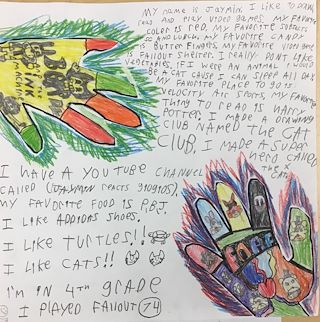 MY NAME IS JAYMIN I LIKE TO DRAW
READ AND PLAY VIDEO GAMES. MY FAVORITE
COLOR IS RED, MY FAVORITE SUBJECTS
IS AND LUNCH, MY FAVORITE CANDY
IS BUTTER FINGERS, MY FAVORITE VIDEO GAME
IS FALLOUT SHELTER. I REALLY DON'T LIKE
VEGETABLES, IF I WERE AN ANIMAL I WOULD
BE A CAT CAUSE I CAN SLEEP ALL DAY.
MY FAVORITE PLACE TO GO IS
VELOCITY AIR SPORTS, MY FAVORITE
THING TO READ IS HARRY
POTTER, I MADE A DRAWING
CLUB NAMED THE CAT
CLUB, I MADE A SUPER
HERO CALLED
THE CAT
I HAVE A YOUTUBE CHANNEL
CALLED (JAYMIN REACTS
MY FAVORITE FOOD IS P.B.J.
I LIKE SHOES.
I LIKE TURTLES!!
I LIKE CATS!!
I'M IN 4TH GRADE
I PLAYED FALLOUT 74